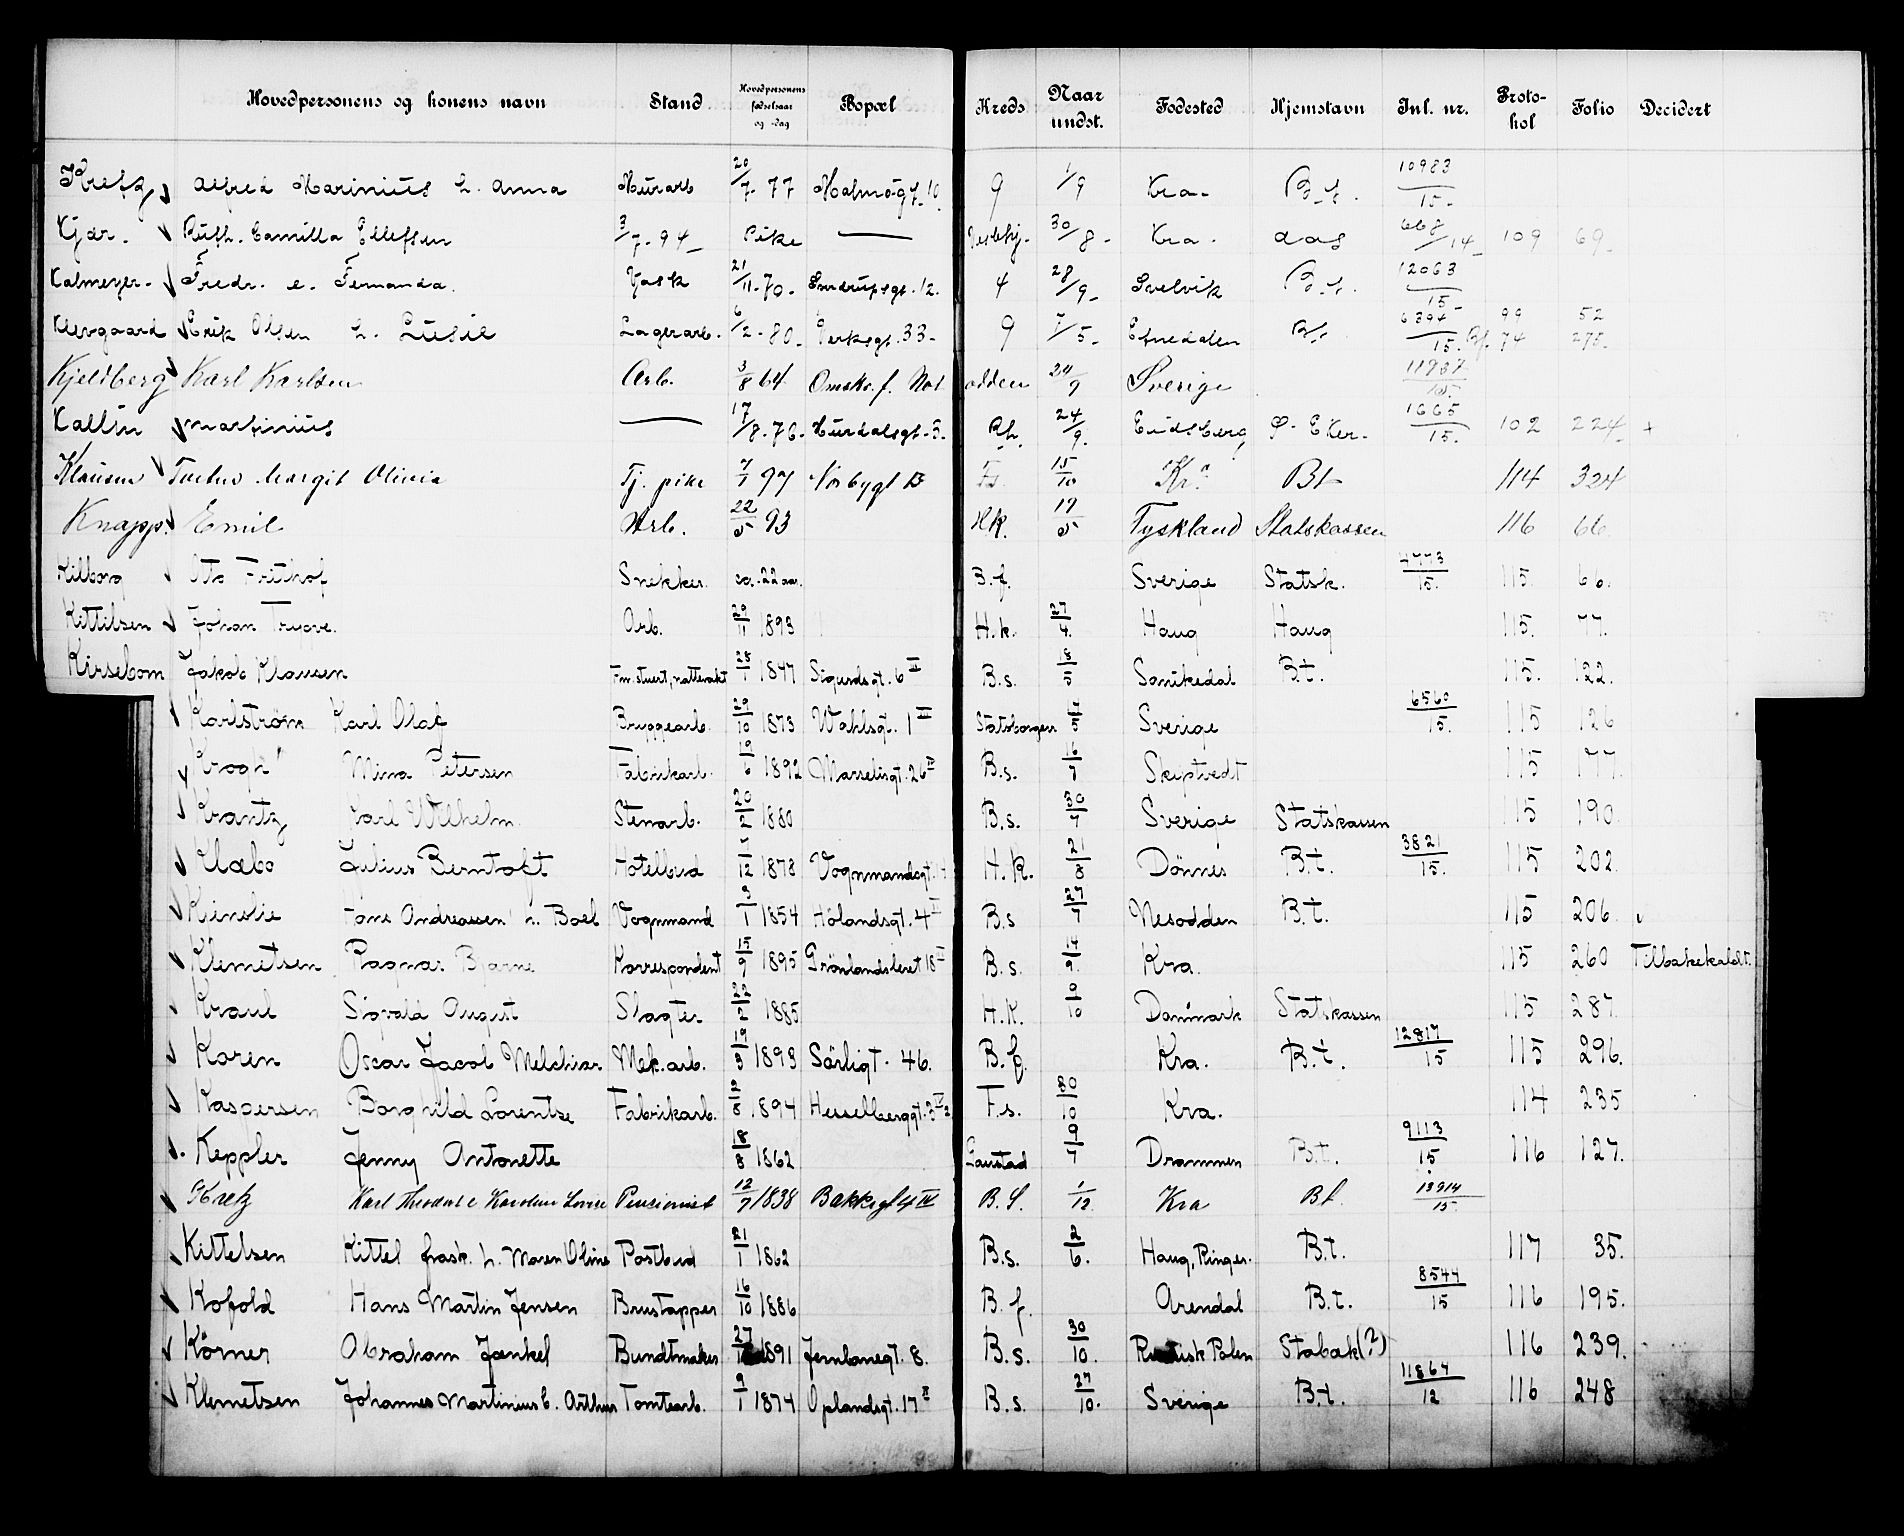 Hovedpersonens og konens navn Stand Hovedpersonens fødselsaar og -dag Bopæl Kreds Naar undst. Fødested Hjemstavn Inl. nr. Protokol Folio Decidert
Kretz Alfred Marinius h. Anna Murarb 20/7-77 Malmøgt. 10 9 1/9 Kra. B.t. 10983/15
Kjær. Ruth Camilla Ellefsen 3/7-94 Pike — 30/8 Kra. Aas 668/14 109 69
Kalmeyer Fredr. e. Fernanda Vask 21/11-70 Sverdrupsgt. 12. 4 28/9 Svelvik B.t. 12063/15
Klevgaard Erik Olsen h. Lusie Lagerarb. 6/2-80 Verksgt. 33 9 7/5 Etnedalen B.t. 6394/15 99 74 52 275
Kjeldberg Karl Karlsen Arb. 3/8 64 Omsko. f. Notodden 24/9 Sverige 11737/15
Kallin Martinius — 17/8-76 Hurdalsgt. 3. 24/9 Eidsberg Ø. Eker. 1665/15 102 224 +
Klausen Margit Olivia Tj. pike 7/1 97 Nybygt 13 F.s. 15/10 "Kr." Bt 114 324
Knapp. Emil Arb. 22/5 93 H.K. 19/5 Tyskland Statskassen 116 66
Kilborg Oto Frithof Snekker. ca. 22 aar. B.f. Sverige Statsk. 4773/15. 115. 66.
Kittilsen Johan Trygve. Arb. 29/11 1893 H.k. 27/4. Haug Haug 115. 77.
Kirsebom Jakob Klausen Fm. stuert, nattevakt 28/1 1847 Sigurdsgt. 6 II B.s. 18/5 Sanikedal B.t. 115. 122.
Karlstrøm Karl Olaf Bryggearb. 29/10 1873 Wahlsgt. 1 III Statsborger 14/5 Sverige 6560/15. 115 126
Krogh Mina Petersen Fabrikarb. 19/6 1892 Marselisgt. 26 IV B.s. 16/7 Skiptvedt 115 177.
Krantz Karl Wilhelm Stenarb. 20/2 1880 B.s. 30/7 Sverige Statskassen 115 190
Klæbo Julius Berntoft Hotelbud 1/12 1878 Vognmandsgt. H.K. 21/8 Dønnes B.t. 3821/15. 115 202
Kinelie Andreassen h. Boel Vognmand 3/1 1854 Hølandsgt. 4 II B.s 27/7 Nesodden B.t. 115 206
Klemetsen Ragnar Bjarne Korrespondent 15/9 1895 Grønlandsleret 18 B.s. 14/9. Kra. 115 260 Tilbakekaldt.
Kraul Sigvald August Slagter 22/2 1885 H.K. 9/10 Danmark Statskassen 115 287.
Karen Oscar Jacob Melchior Mek. arb. 19/3 1893 Sarligt. 46. B.f. Kra. B.t. 12817/15 115 296.
Kaspersen Borghild Lorentze Fabrikarb. 2/8 1894 Hesselberggt. 3 IV F.s. 30/10 Kra. 114 235
Keppler Jenny Antonette 18/8 1862 Gaustad 9/7 Drammen B.t. 9113/15 116 127.
Kretz Karl Theodat e Karoline Lovise Pensionist 12/7 1838 Bakkegt 4 IV B.S. 1/12. Kra Bt. 13914/15
Kittelsen Kittel frask. h. Maren Oline Postbud 21/1 1862 B.s. 2/6. Haug, Ringer. B.t. 117 35.
Kofold Hans Martin Jensen Brustapper 16/10 1886 B.f. Arendal B.t. 8544/15 116 195.
Körner Abraham Jankel Bundtmaker 27 1891 Jernbanegt. 8. B.s. 30/10. Russisk Polen Stabæk (?) 116 239.
Klemetsen Johannes Martinius C. Arthur Tomtearb. 9/1 1874 Oplandsgt. 17 II B.s. 27/10. Sverige B.t. 11864/12 116 248